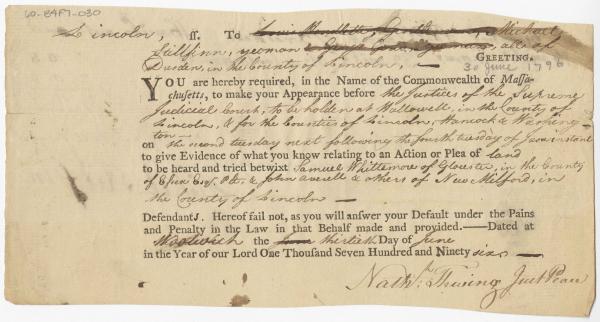 60-84F7-030
Lincoln, ss. To Michael
Stilfinn, yeoman all of
Dresden, in the County of Lincoln, — GREETING.
30 June 1796
YOU are hereby required, in the Name of the Commonwealth of Massa-
chusetts, to make your Appearance before the Justices of the Supreme
Judicial Court, to be holden at Hallowell, in the County of
Lincoln, & for the Counties of Lincoln, Hancock & Washing-
ton —
on the second tuesday next following the fourth tuesday of June instant
to give Evidence of what you know relating to an Action or Plea of land
to be heard and tried betwixt Samuel Whittemore of Glocester, in the County
of Essex Esqr. Plt. & John Averell & others of New Milford, in
the County of Lincoln —
Defendants. Hereof fail not, as you will answer your Default under the Pains
and Penalty in the Law in that Behalf made and provided.—Dated at
Woolwich the thirtieth Day of June
in the Year of our Lord One Thousand Seven Hundred and Ninety six —
Nathl. Thwing Just Peace